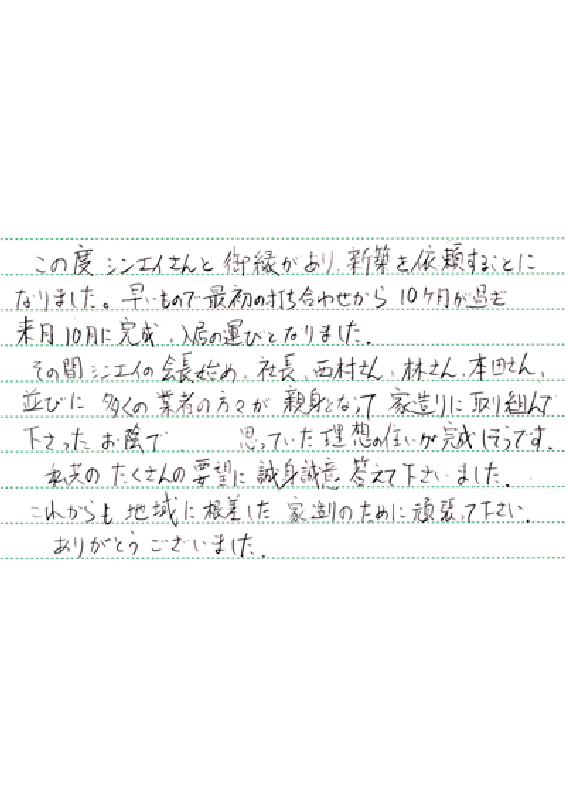 この度 シンエイさんと 御縁があり、新築を依頼することに
なりました。早いもので最初の打ち合わせから 10ケ月が過ぎ
来月10月に完成、入居の運びとなりました。
その間シンエイの会長始め、社長、西村さん、林さん、本田さん、
並びに 多くの業者の方々が 親身となって 家造りに取り組んで
下さったお陰で 思っていた理想の住いが完成しそうです。
私共の たくさんの要望に 誠身誠意 答えて下さいました。
これからも 地域に根差した 家造りのために頑張って下さい。
ありがとうございました。